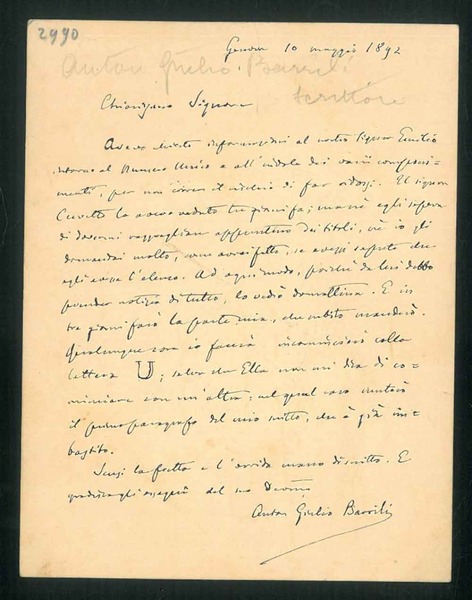 2990
Genova 10 maggio 1892
Anton Giulio Barrili
scrittore
Chiarissimo Signore,
Avevo chiesto informazioni al nostro Signor Emilio
intorno al Numero Unico e all'indole dei varii componi-
menti, per non correre il rischio di far doppi. Il signor
Cuvetto la aveva veduto tre giorni fa; ma nè egli sapeva
di darmi ragguagli appuntino dei titoli, nè io gli
domandai molto, come avrei fatto, se avessi saputo che
egli aveva l'elenco. Ad ogni modo, poichè da lui debbo
prender notizia di tutto, lo vedrò domattina. E in
tre giorni farò la parte mia, che subito manderò.
Qualunque cosa io faccia incomincierà colla
lettera U; salvo che Ella non mi dica di co-
minciare con un'altra: nel qual caso muterò
il primo paragrafo del mio scritto, che è già im-
bastito.
Scusi la fretta e l'orrida mano di scritto. E
gradisca gli ossequi del suo Devmo
Anton Giulio Barrili